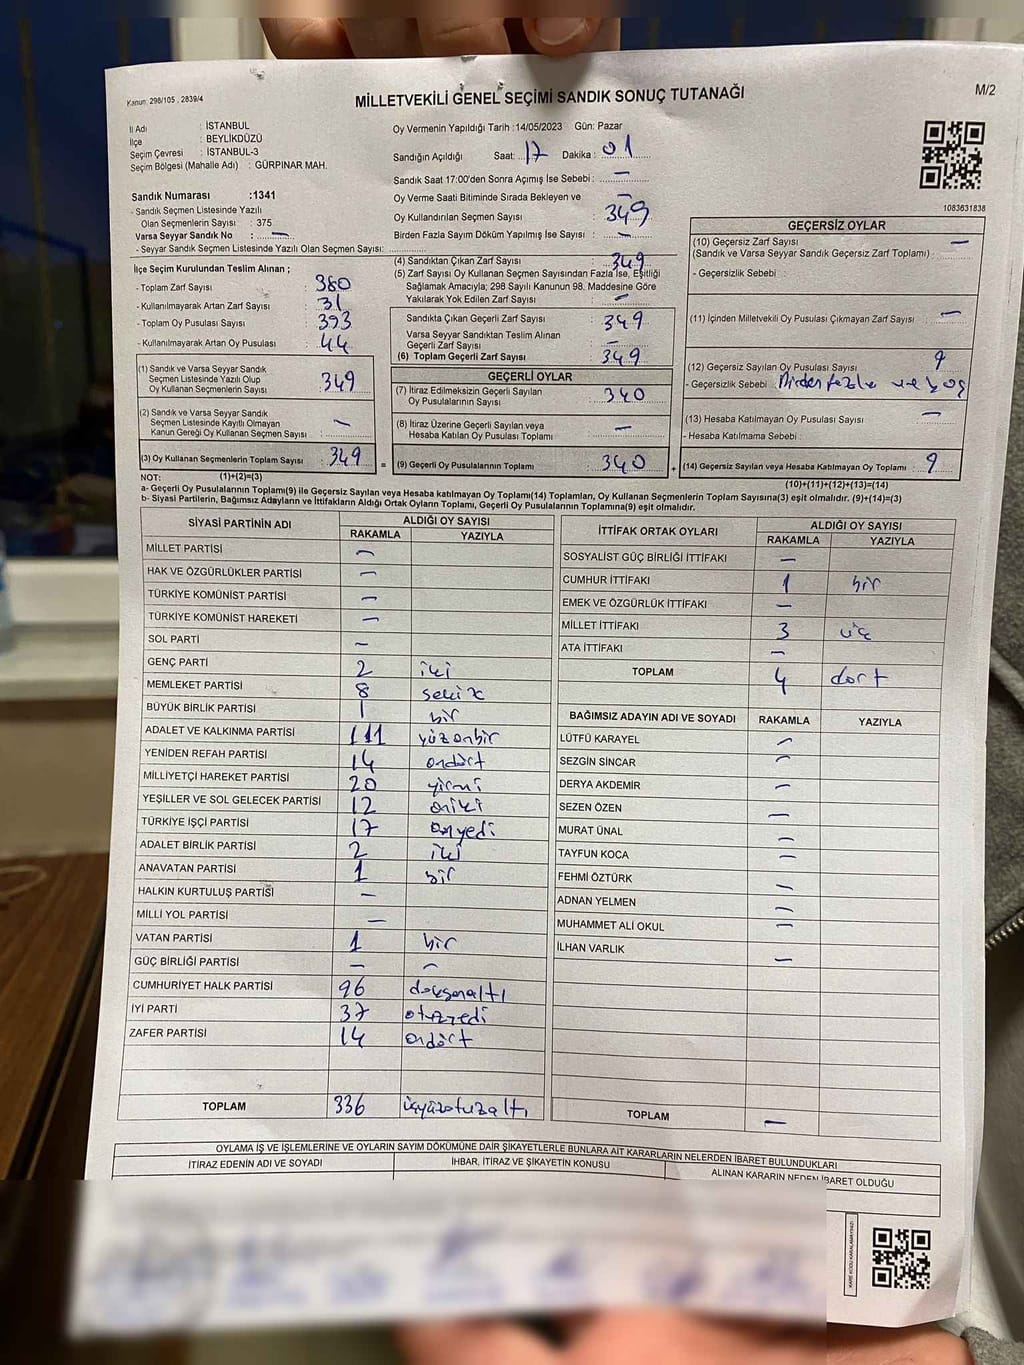 Kanun: 298/105 , 2839/4
MİLLETVEKİLİ GENEL SEÇİMİ SANDIK SONUÇ TUTANAĞI
M/2
İl Adı : İSTANBUL
İlçe : BEYLİKDÜZÜ
Seçim Çevresi : İSTANBUL-3
Seçim Bölgesi (Mahalle Adı) : GÜRPINAR MAH.
Oy Vermenin Yapıldığı Tarih :14/05/2023 Gün: Pazar
Sandığın Açıldığı Saat: 17 Dakika : 01
Sandık Saat 17:00'den Sonra Açımış İse Sebebi : —
Sandık Numarası :1341
- Sandık Seçmen Listesinde Yazılı
Olan Seçmenlerin Sayısı : 375
Varsa Seyyar Sandık No : —
- Seyyar Sandık Seçmen Listesinde Yazılı Olan Seçmen Sayısı:
Oy Verme Saati Bitiminde Sırada Bekleyen ve
Oy Kullandırılan Seçmen Sayısı : 349
Birden Fazla Sayım Döküm Yapılmış İse Sayısı : —
1083631838
İlçe Seçim Kurulundan Teslim Alınan ;
- Toplam Zarf Sayısı : 380
- Kullanılmayarak Artan Zarf Sayısı : 31
- Toplam Oy Pusulası Sayısı : 393
- Kullanılmayarak Artan Oy Pusulası : 44
(1) Sandık ve Varsa Seyyar Sandık
Seçmen Listesinde Yazılı Olup
Oy Kullanan Seçmenlerin Sayısı : 349
(2) Sandık ve Varsa Seyyar Sandık
Seçmen Listesinde Kayıtlı Olmayan
Kanun Gereği Oy Kullanan Seçmen Sayısı : —
(3) Oy Kullanan Seçmenlerin Toplam Sayısı : 349
(4) Sandıktan Çıkan Zarf Sayısı : 349
(5) Zarf Sayısı Oy Kullanan Seçmen Sayısından Fazla İse, Eşitliği
Sağlamak Amacıyla; 298 Sayılı Kanunun 98. Maddesine Göre
Yakılarak Yok Edilen Zarf Sayısı : —
Sandıkta Çıkan Geçerli Zarf Sayısı : 349
Varsa Seyyar Sandıktan Teslim Alınan
Geçerli Zarf Sayısı : —
(6) Toplam Geçerli Zarf Sayısı : 349
GEÇERLİ OYLAR
(7) İtiraz Edilmeksizin Geçerli Sayılan
Oy Pusulalarının Sayısı : 340
(8) İtiraz Üzerine Geçerli Sayılan veya
Hesaba Katılan Oy Pusulası Toplamı : —
= (9) Geçerli Oy Pusulalarının Toplamı : 340
GEÇERSİZ OYLAR
(10) Geçersiz Zarf Sayısı —
(Sandık ve Varsa Seyyar Sandık Geçersiz Zarf Toplamı) :
- Geçersizlik Sebebi :
(11) İçinden Milletvekili Oy Pusulası Çıkmayan Zarf Sayısı : —
(12) Geçersiz Sayılan Oy Pusulası Sayısı : 9
- Geçersizlik Sebebi : Birden fazla ve boş
(13) Hesaba Katılmayan Oy Pusulası Sayısı : —
- Hesaba Katılmama Sebebi :
+ (14) Geçersiz Sayılan veya Hesaba Katılmayan Oy Toplamı : 9
NOT: (1)+(2)=(3)
(10)+(11)+(12)+(13)=(14)
a- Geçerli Oy Pusulalarının Toplamı(9) ile Geçersiz Sayılan veya Hesaba katılmayan Oy Toplamı(14) Toplamları, Oy Kullanan Seçmenlerin Toplam Sayısına(3) eşit olmalıdır. (9)+(14)=(3)
b- Siyasi Partilerin, Bağımsız Adayların ve İttifakların Aldığı Ortak Oyların Toplamı, Geçerli Oy Pusulalarının Toplamına(9) eşit olmalıdır.
SİYASİ PARTİNİN ADI ALDIĞI OY SAYISI
RAKAMLA YAZIYLA
MİLLET PARTİSİ —
HAK VE ÖZGÜRLÜKLER PARTİSİ —
TÜRKİYE KOMÜNİST PARTİSİ —
TÜRKİYE KOMÜNİST HAREKETİ —
SOL PARTİ —
GENÇ PARTİ 2 iki
MEMLEKET PARTİSİ 8 sekiz
BÜYÜK BİRLİK PARTİSİ 1 bir
ADALET VE KALKINMA PARTİSİ 111 yüzonbir
YENİDEN REFAH PARTİSİ 14 ondört
MİLLİYETÇİ HAREKET PARTİSİ 20 yirmi
YEŞİLLER VE SOL GELECEK PARTİSİ 12 oniki
TÜRKİYE İŞÇİ PARTİSİ 17 onyedi
ADALET BİRLİK PARTİSİ 2 iki
ANAVATAN PARTİSİ 1 bir
HALKIN KURTULUŞ PARTİSİ —
MİLLİ YOL PARTİSİ —
VATAN PARTİSİ 1 bir
GÜÇ BİRLİĞİ PARTİSİ — —
CUMHURİYET HALK PARTİSİ 96 doksanaltı
İYİ PARTİ 37 otuzyedi
ZAFER PARTİSİ 14 ondört
TOPLAM 336 üçyüzotuzaltı
İTTİFAK ORTAK OYLARI ALDIĞI OY SAYISI
RAKAMLA YAZIYLA
SOSYALİST GÜÇ BİRLİĞİ İTTİFAKI —
CUMHUR İTTİFAKI 1 bir
EMEK VE ÖZGÜRLÜK İTTİFAKI —
MİLLET İTTİFAKI 3 üç
ATA İTTİFAKI —
TOPLAM 4 dört
BAĞIMSIZ ADAYIN ADI VE SOYADI RAKAMLA YAZIYLA
LÜTFÜ KARAYEL —
SEZGİN SİNCAR —
DERYA AKDEMİR —
SEZEN ÖZEN —
MURAT ÜNAL —
TAYFUN KOCA —
FEHMİ ÖZTÜRK —
ADNAN YELMEN —
MUHAMMET ALİ OKUL —
İLHAN VARLIK —
TOPLAM —
OYLAMA İŞ VE İŞLEMLERİNE VE OYLARIN SAYIM DÖKÜMÜNE DAİR ŞİKAYETLERLE BUNLARA AİT KARARLARIN NELERDEN İBARET BULUNDUKLARI
İTİRAZ EDENİN ADI VE SOYADI İHBAR, İTİRAZ VE ŞİKAYETİN KONUSU ALINAN KARARIN NEDEN İBARET OLDUĞU